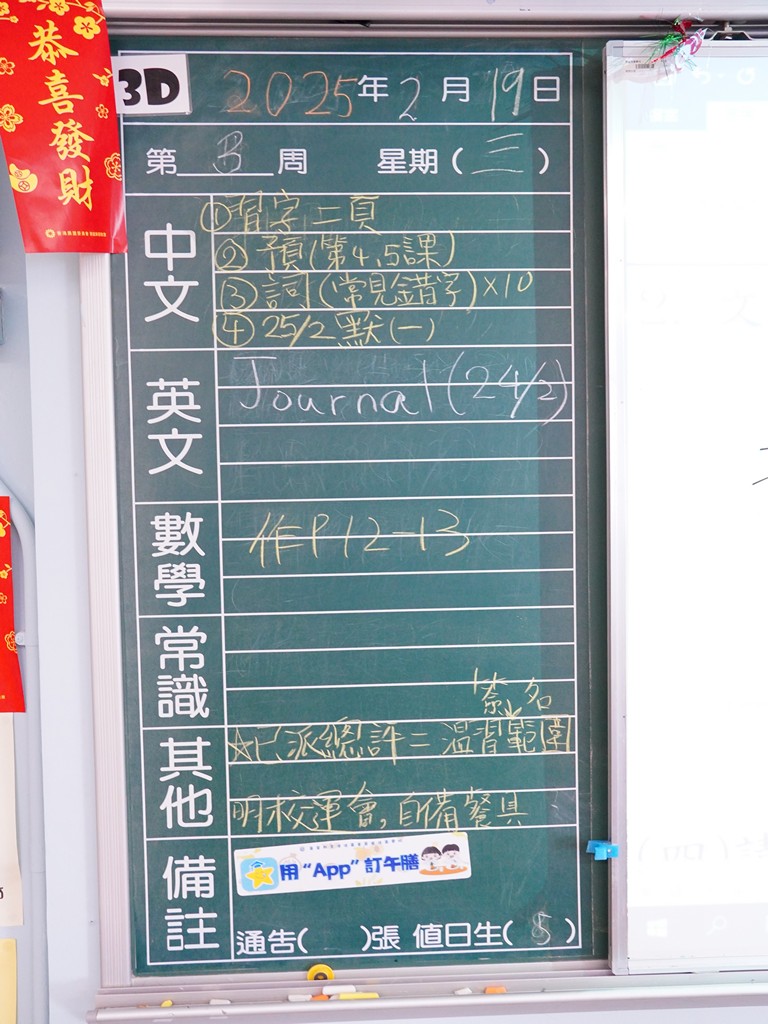 恭喜發財
3D 2025年2月19日
第 周 星期(三)
中文
①習字二頁
②預(第4,5課)
③詞(常見錯字)×10
④25/2默(一)
英文
Journal(24/2)
數學
作P12-13
常識
簽名
其他
☆已派總評二溫習範圍
明校運會,自備餐具
備註
用“App”訂午膳
通告( )張 值日生(5)